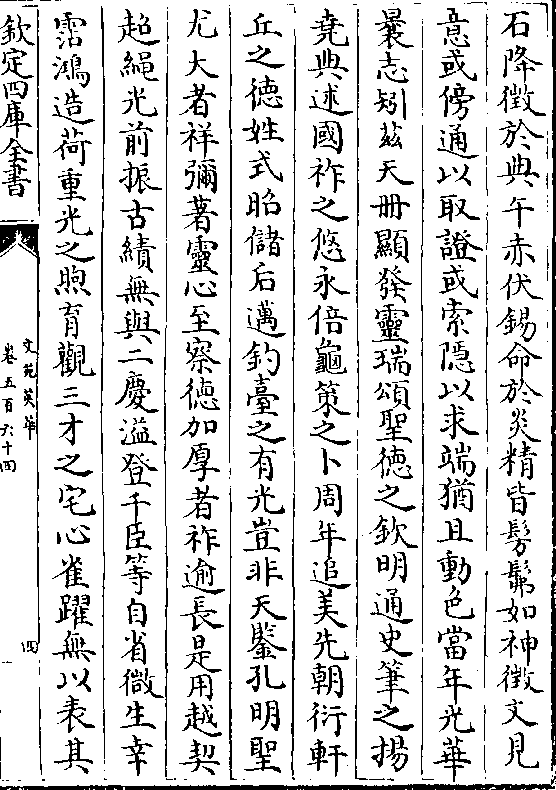 石降徵於典午赤伏錫命於炎精皆髣髴如神徵文見
意或傍通以取證或索隱以求端猶且動色當年光華
曩志矧兹天冊顯發靈瑞頌聖德之欽明通史筆之揚
堯典述國祚之悠永倍龜策之卜周年追美先朝衍軒
丘之德姓式昭儲后邁鈞臺之有光豈非天鑒孔明聖
尤大者祥彌著靈心至察德加厚者祚逾長是用越契
超繩光前振古績無與二慶溢登千臣等自省微生幸
霑鴻造荷重光之煦育觀三才之宅心雀躍無以表其
欽定四庫全書
文苑英華
卷五百六十四
四